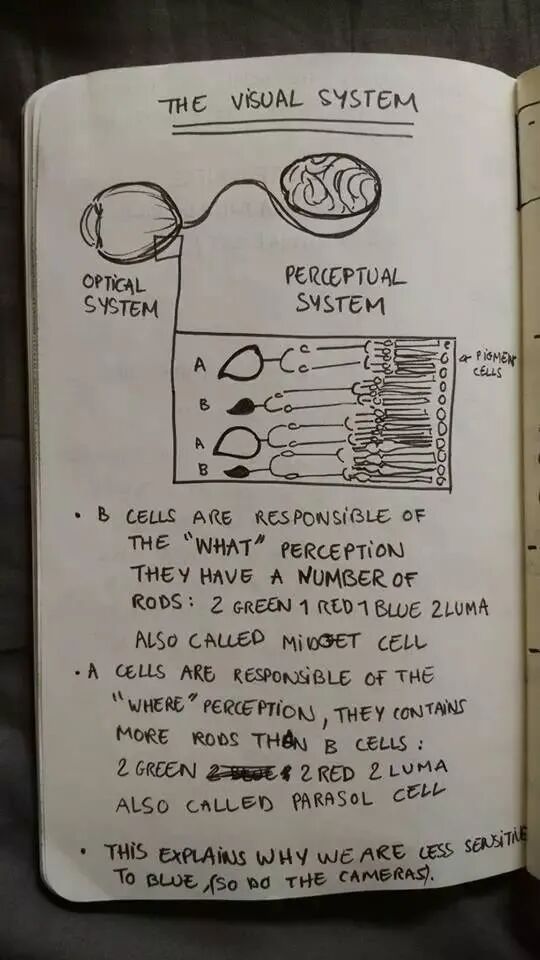 THE VISUAL SYSTEM
OPTICAL
SYSTEM
PERCEPTUAL
SYSTEM
A
B
A
B
PIGMENT
CELLS
• B CELLS ARE RESPONSIBLE OF
THE "WHAT" PERCEPTION
THEY HAVE A NUMBER OF
RODS: 2 GREEN 1 RED 1 BLUE 2 LUMA
ALSO CALLED MIDGET CELL
• A CELLS ARE RESPONSIBLE OF THE
"WHERE" PERCEPTION, THEY CONTAINS
MORE RODS THAN B CELLS:
2 GREEN 2 RED 2 LUMA
ALSO CALLED PARASOL CELL
• THIS EXPLAINS WHY WE ARE LESS SENSITIVE
TO BLUE, (SO DO THE CAMERAS).